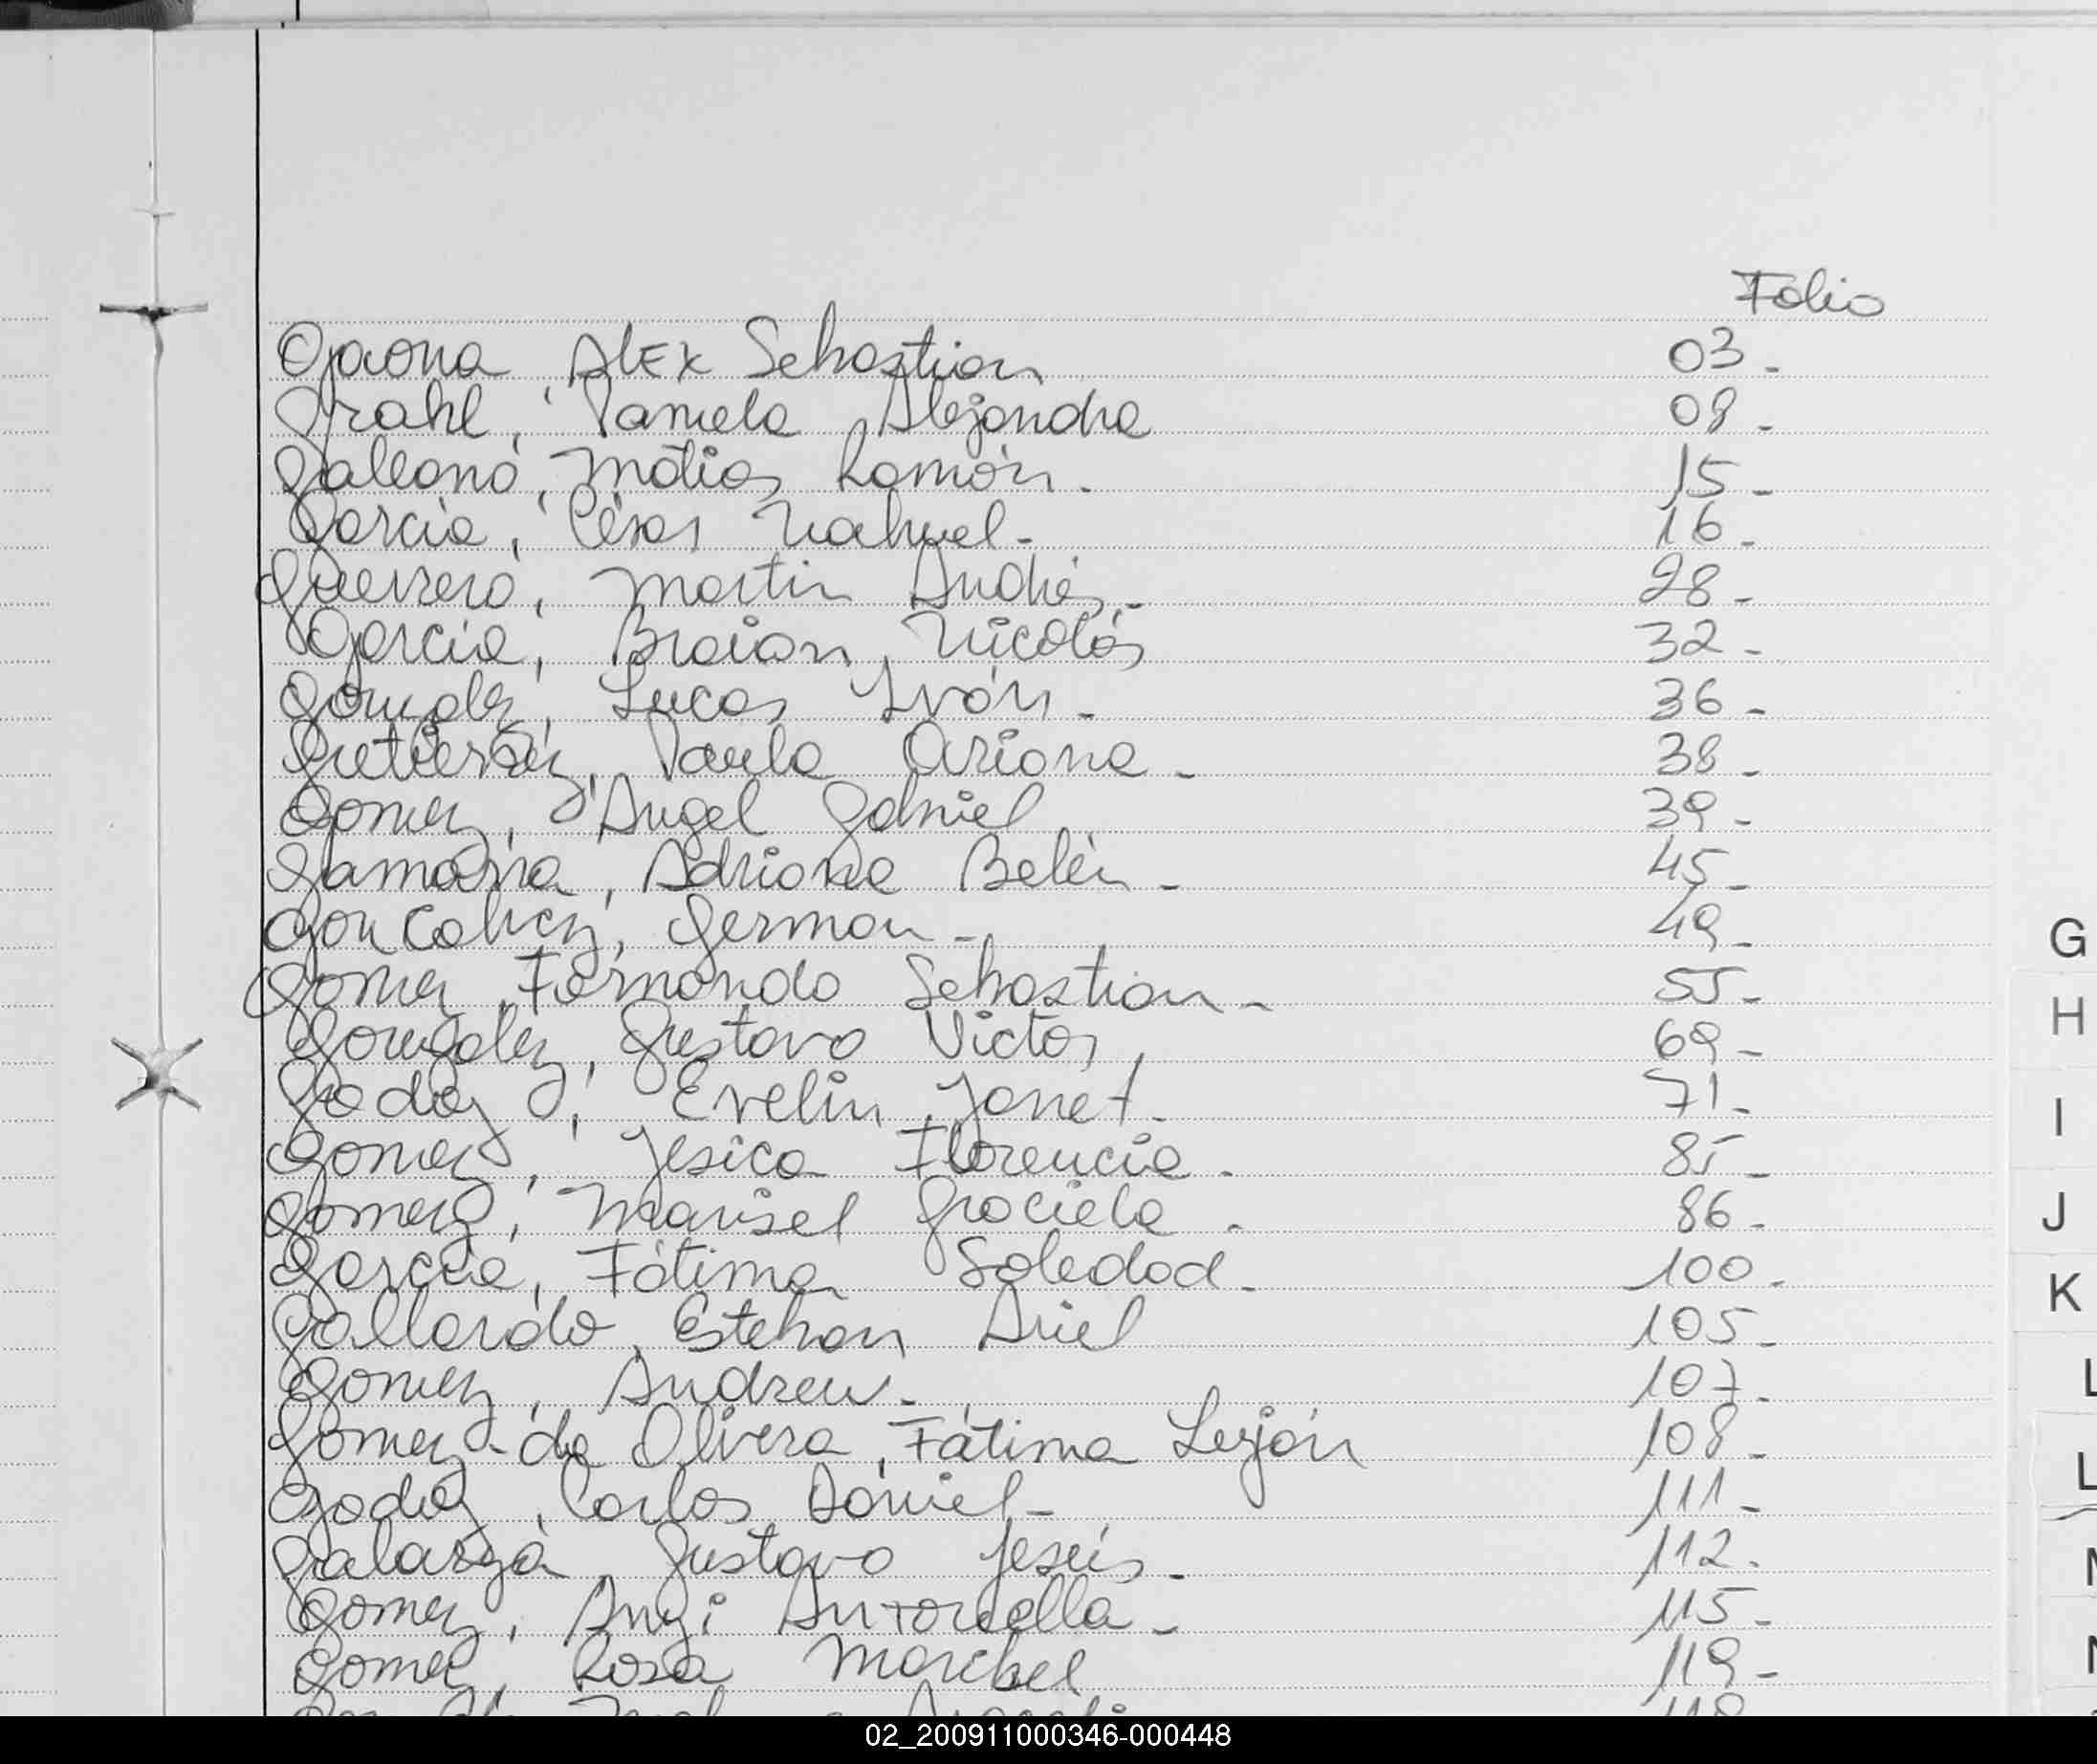 Folio
Gaona, Alex Sebastian 03-
Grahl, Pamela Alejandra 08-
Galeano, Matias Ramón. 15-
Garcia, César Nahuel- 16-
Guerrero, Martin Andrés- 28-
Garcia, Braian Nicolás 32-
Gonzalez, Lucas Iván- 36-
Gutierrez, Paula Ariana- 38-
Gomez, Angel Gabriel 39-
Gamarra, Adriana Belén- 45-
Goncalvez, German- 49-
Gomez, Fernando Sebastian- 55-
Gonzalez, Gustavo Victor, 69-
Godoy, Evelin Janet- 71-
Gomez, Jesica Florencia. 85-
Gomez, Marisel Graciela. 86-
Garcia, Fátima Soledad- 100-
Gallardo, Esteban Ariel 105-
Gomez, Andrew- 107-
Gomez da Olivera, Fátima 108-
Godoy, Carlos Daniel- 111-
Galarza, Gustavo Jesús- 112-
Gomez, Angi Antonella- 115-
Gomez, Rosa Maribel 119-
G
H
I
J
K
L
L
02_200911000346-000448